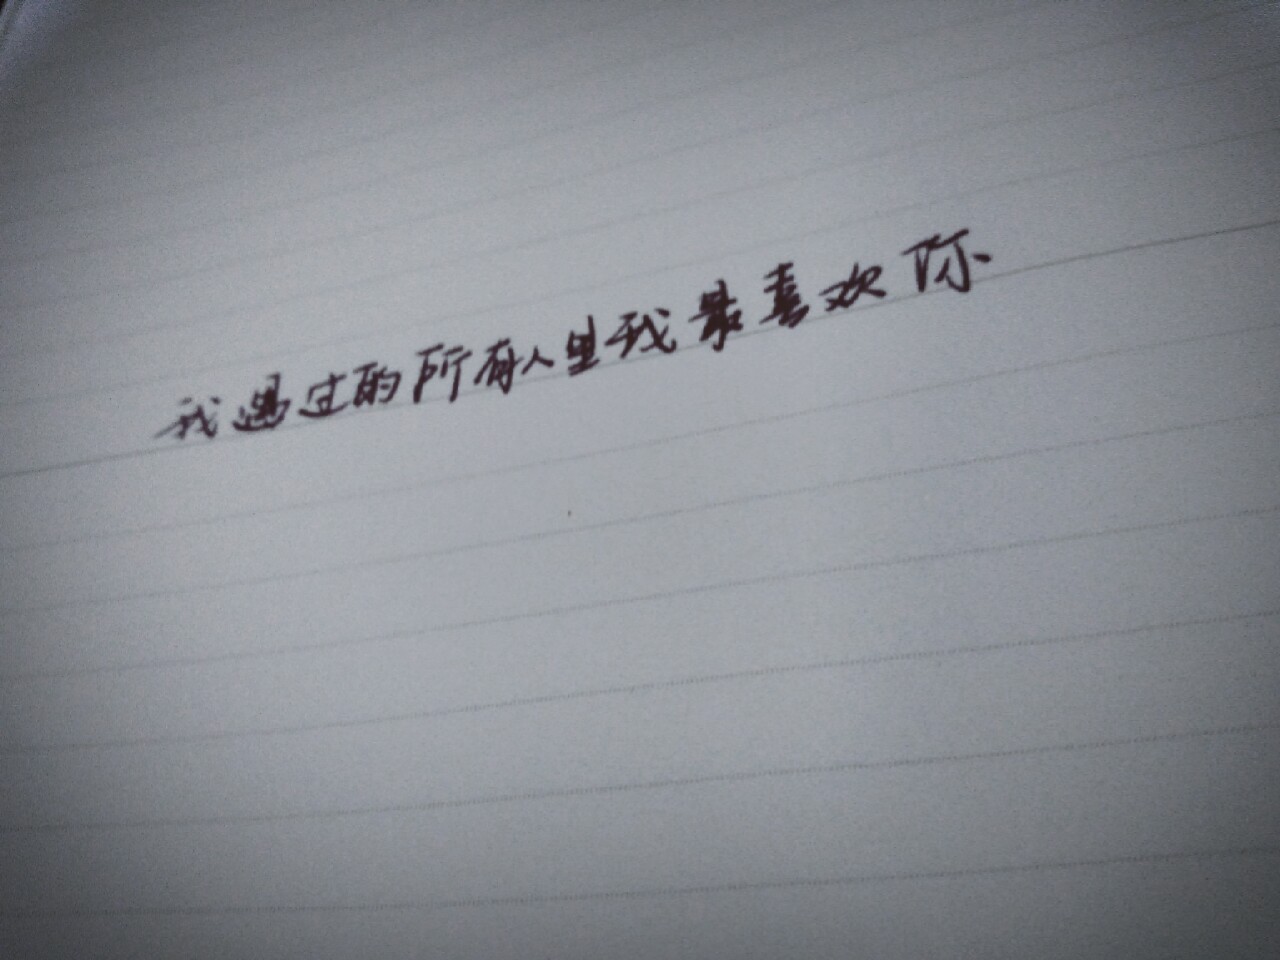 我遇过的所有人里我最喜欢你